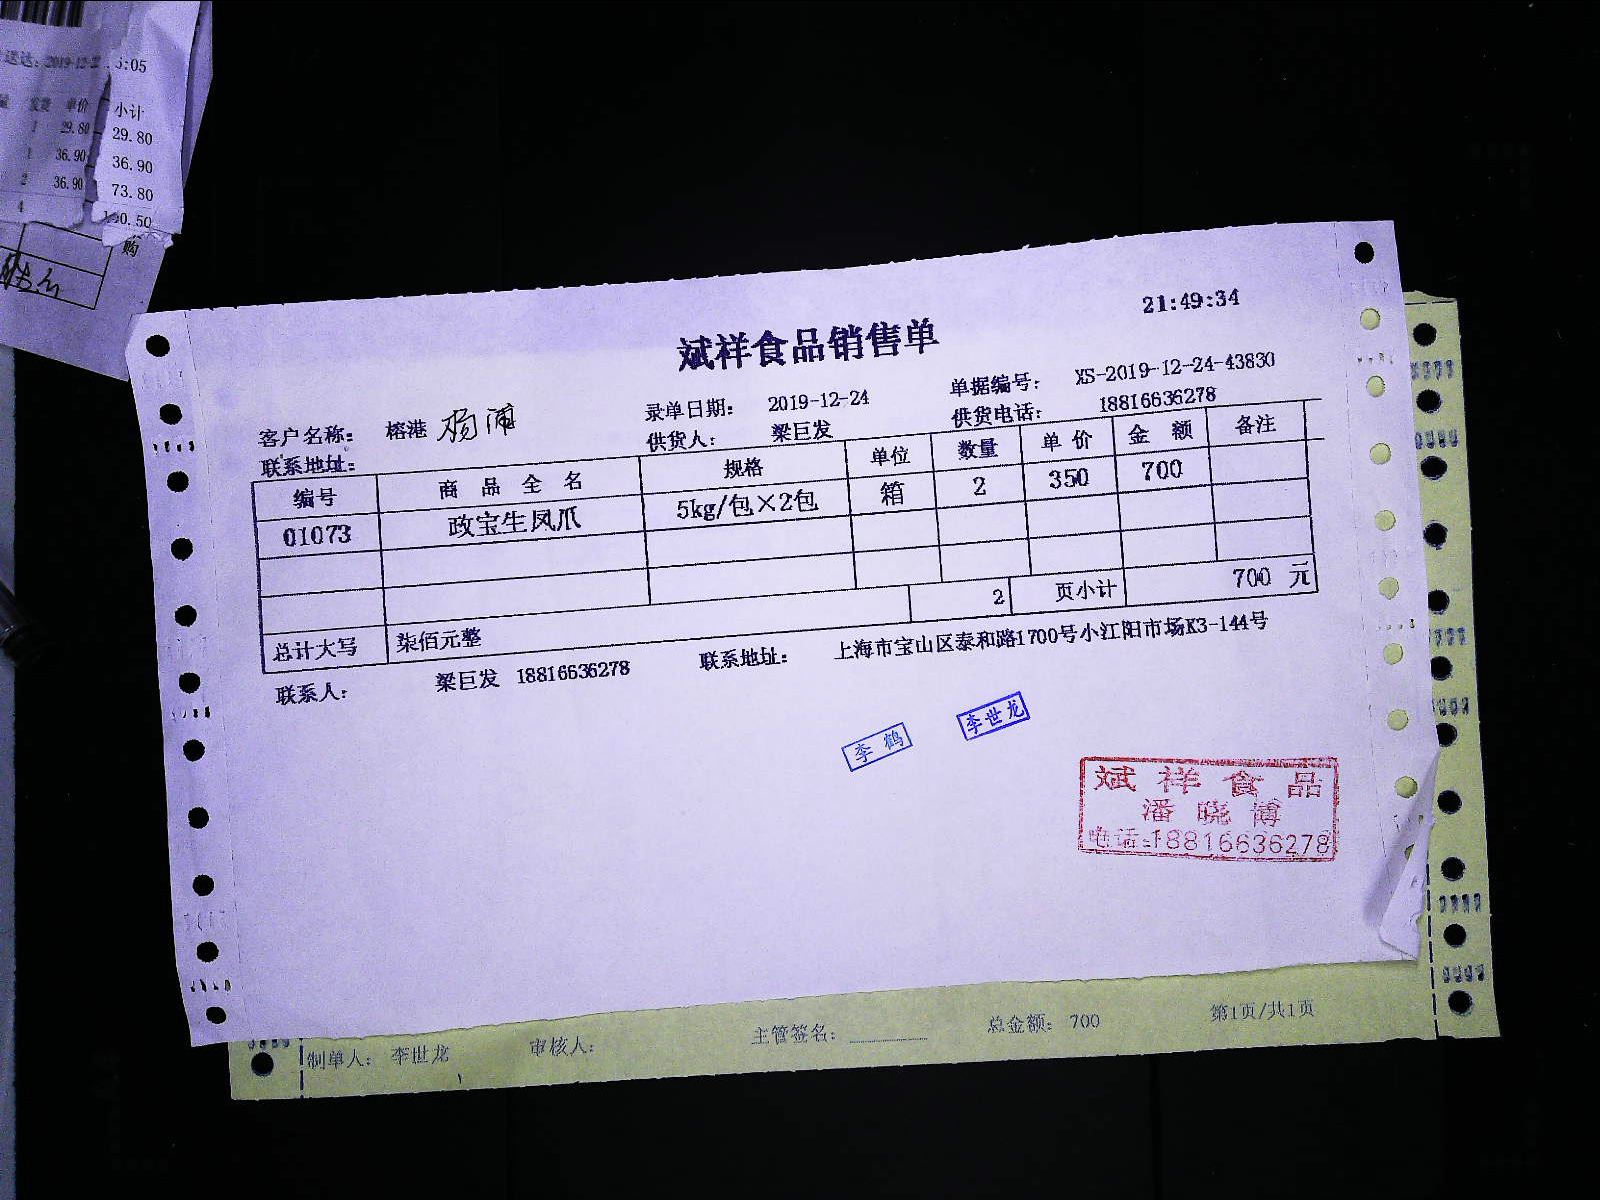 2019-12-2
5:05
单价 小计
1 29.80 29.80
1 36.90 36.90
2 36.90 73.80
4
购
21:49:34
斌祥食品销售单
客户名称: 榕港 杨浦 录单日期: 2019-12-24 单据编号: XS-2019-12-24-43830
联系地址: 供货人: 梁巨发 供货电话: 18816636278
编号 商品全名 规格 单位 数量 单价 金额 备注
01073 政宝生凤爪 5kg/包×2包 箱 2 350 700
2 页小计 700 元
总计大写 柒佰元整
联系人: 梁巨发 18816636278 联系地址: 上海市宝山区泰和路1700号小江阳市场K3-144号
李鹤 李世龙
斌祥食品
潘晓博
电话:18816636278
制单人: 李世龙 审核人: 主管签名: 总金额: 700 第1页/共1页